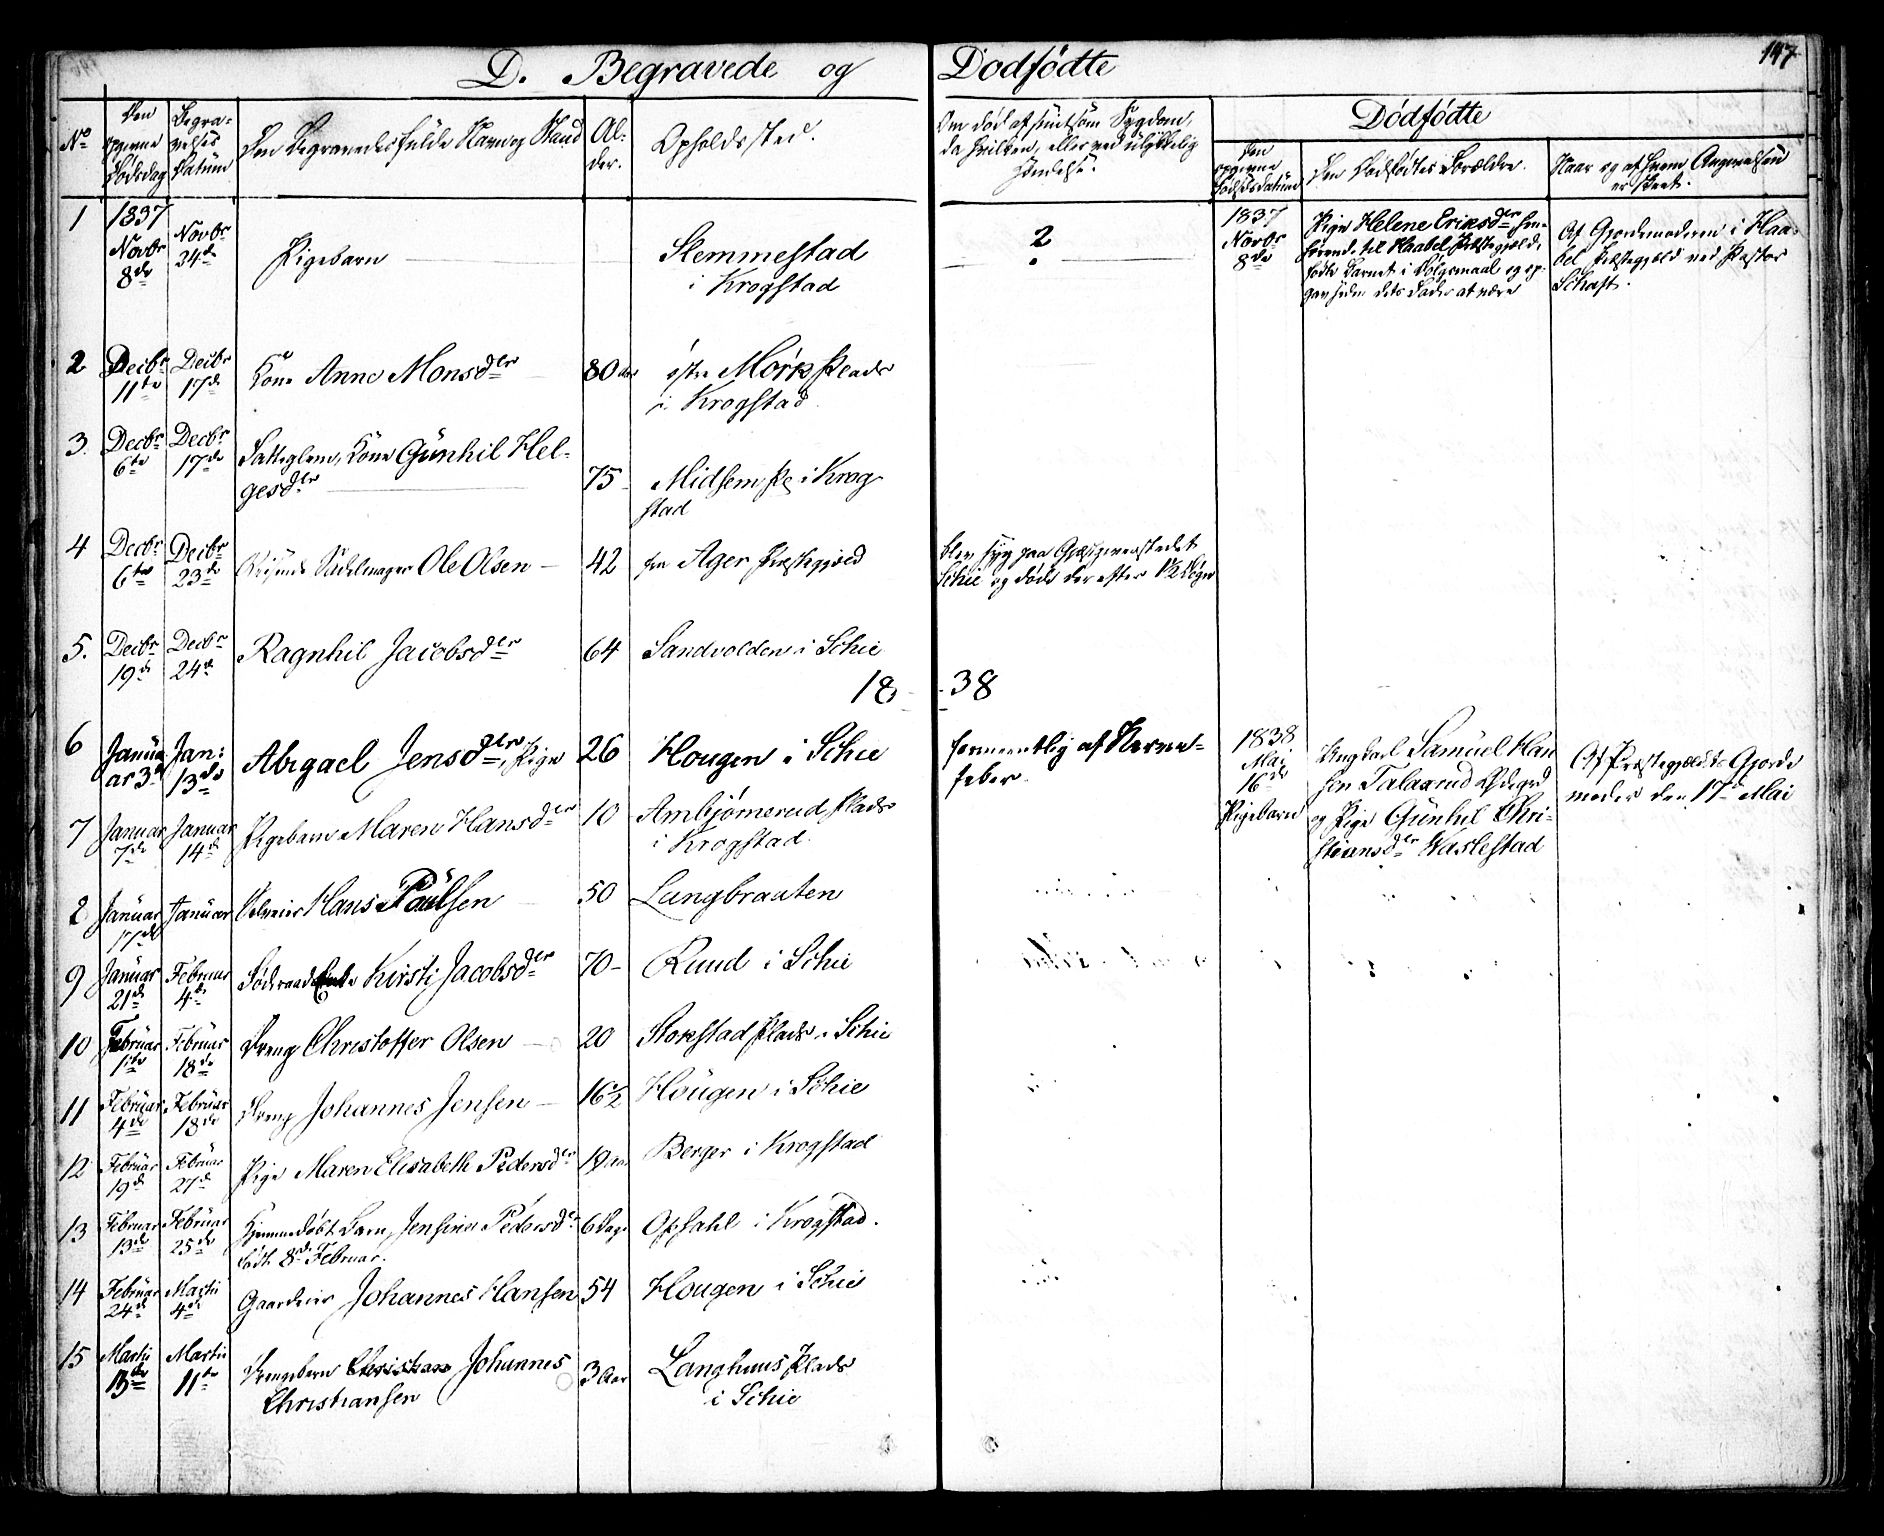 D. Begravede og Dødfødte
147
No
Den opgivne Dødsdag
Begravelses Datum
Den Begravedes fulde Navn og Stand
Alder.
Opholdssted.
Om død af smitsom Sygdom,
da hvilken, eller ved ulykkelig
Hendelse.
Dødfødte
Den opgivne Fødselsdatum
Den Dødfødtes Forældre.
Naar og af hvem Anmeldelsen
er skeet.
1
1837
Novbr 8de
Novbr 24de
Pigebarn
Slemmestad
i Krogstad
?
1837
Novbr
8de
Pige Helene Eriksdr hen-
hørende til Haabel Præstegjeld,
fødte Barnet i Dølgsmaal og op-
gav siden dets Fader at være
Af Gjordemoderen i Haa-
bel Præstegjæld ved Pastor
Schaft.
2
Decbr 11te
Decbr 17de
Kone Anne Monsdtr
80 Aar
østre Mørk Plads
i Krogstad
3.
Decbr 6te
Decbr 17de
Fatteglem, Kone Gunhil Hel-
gesdtr
75
Midsem Pl i Krog
stad
4
Decbr 6te
Decbr 23de
Sadelmager Ole Olsen
42
fra Ager Præstegjeld
blev syg paa Gjæstgiverstedet
Schie og døde der efter 1½ Døgn
5.
Decbr 19de
Decbr 24de
Ragnhil Jacobsdtr
64
Sandvolden i Schie
18 - 38
6
Januar 3de
Jan: 13de
Abigael Jensdtr, Pige
26
Hougen i Schie
formeentlig af Nerve-
feber.
1838
Mai
16de
Pigebarn
Ungkarl Samuel Han
sen Talaarud
og Pige Gunhil Chri-
stiansdtr Vaslestad
Af Præstegjeldets Gjorde
moder den 17de Mai
7
Januar 7de
Januar 14de
Pigebarn Maren Hansdtr
10
Ambjørnerud Plads
i Krogstad
8
Januar 17de
Januar
Selveier Hans Paulsen
50
Langbraaten
9
Januar 21de
Februar 4de
Føderaads Enke Kirsti Jacobsdtr
70
Ruud i Schie
10
Februar 1te
Februar 18de
Dreng Christoffer Olsen
20
Stokstad Plads i Schie
11
Februar 4de
Februar 18de
Dreng Johannes Jensen
16½
Hougen i Schie
12
Februar 19de
Februar 27de
Pige Maren Elisabeth Pedersdtr
19 Aar
Berger i Krogstad
13
Februar 13de
Februar 25de
Hjemmedøbt Barn, Jensine Pedersdtr
født 8de Februar.
6 Dage
Opsahl i Krogstad.
14
Februar 24de
Martii 4de
Gaardeier Johannes Hansen
54
Hougen i Schie
15
Martii 13de
Martii 11te
Drengebarn Christian Johannes
Christiansen
3 Aar
Langhuus Plads
i Schie